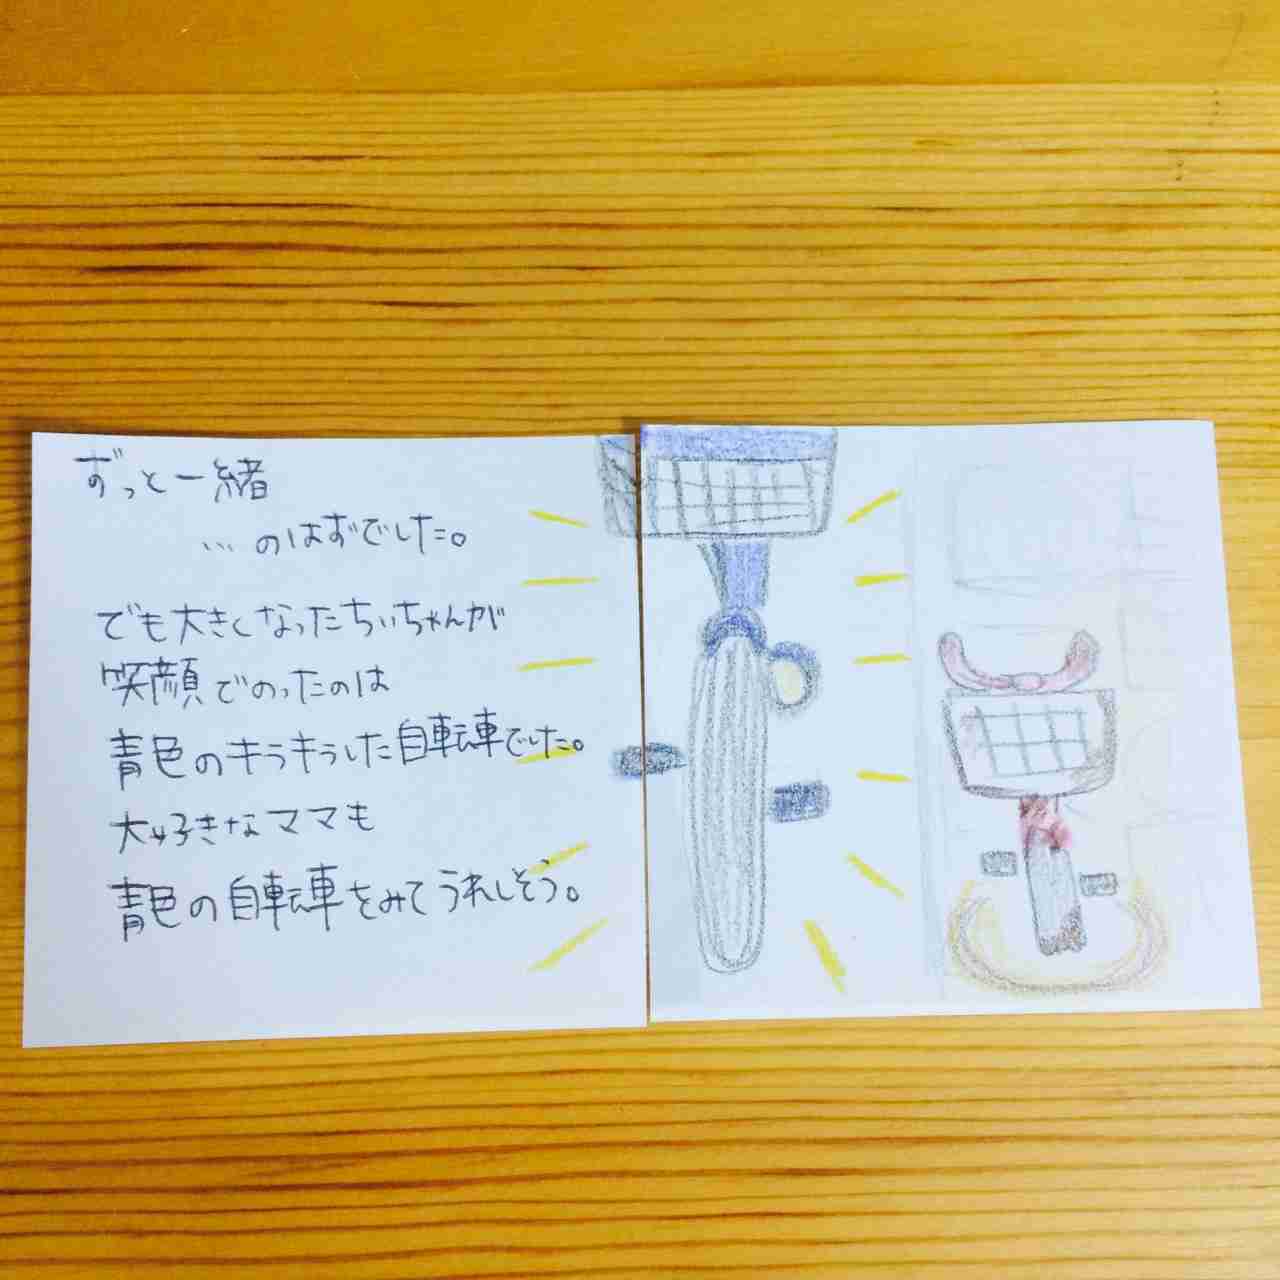 ずっと一緒
…のはずでした。
でも大きくなったちぃちゃんが
笑顔でのったのは
青色のキラキラした自転車でした。
大好きなママも
青色の自転車をみてうれしそう。